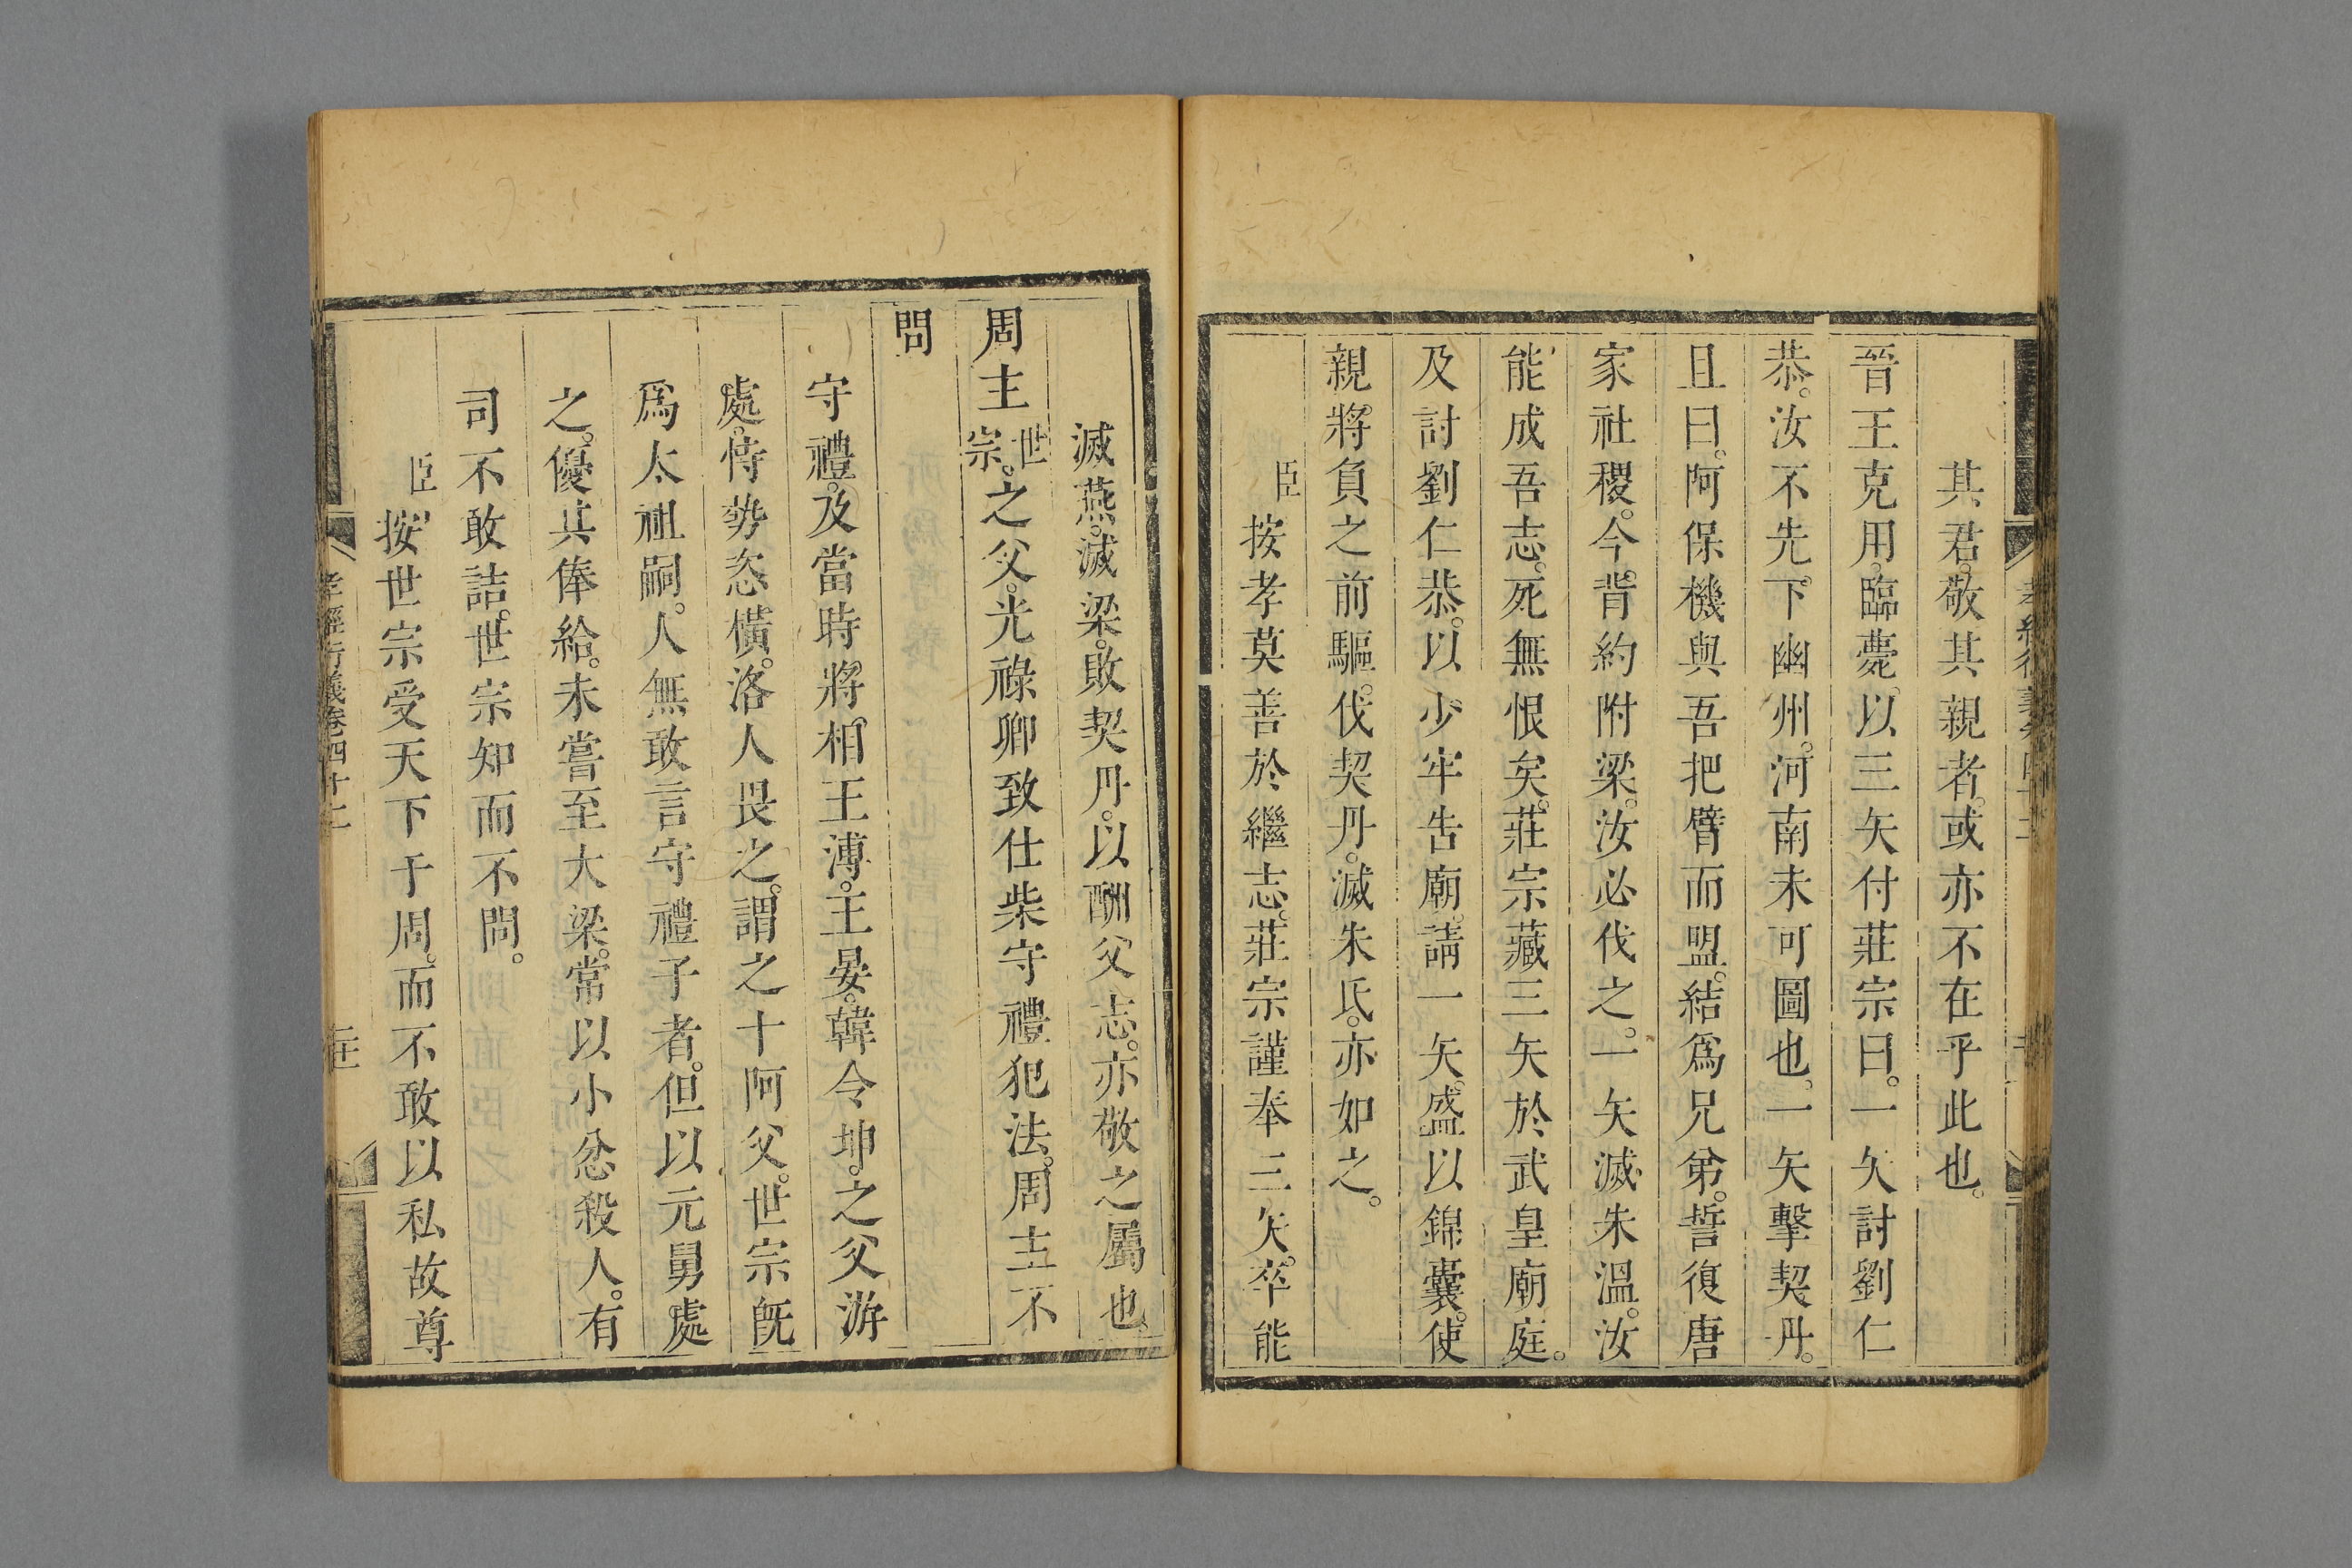 其君。敬其親者。或亦不在乎此也。
晉王克用。臨薨。以三矢付莊宗曰。一矢討劉仁
恭。汝不先下幽州。河南未可圖也。一矢擊契丹。
且曰。阿保機與吾把臂而盟。結爲兄弟。誓復唐
家社稷。今背約附梁。汝必伐之。一矢滅朱溫。汝
能成吾志。死無恨矣。莊宗藏三矢於武皇廟庭。
及討劉仁恭。以少牢告廟。請一矢。盛以錦囊。使
親將負之前驅。伐契丹。滅朱氏。亦如之。
臣按孝莫善於繼志。莊宗謹奉三矢。卒能
滅燕。滅梁。敗契丹。以酬父志。亦敬之屬也
周主世宗。之父。光祿卿致仕柴守禮犯法。周主不
問
守禮。及當時將相王溥。王晏。韓令坤。之父游
處。恃勢恣橫。洛人畏之。謂之十阿父。世宗旣
爲太祖嗣。人無敢言守禮子者。但以元舅處
之。優其俸給。未嘗至大梁。常以小忿殺人。有
司不敢詰。世宗知而不問。
臣按世宗受天下于周。而不敢以私故尊
孝經衍義卷四十